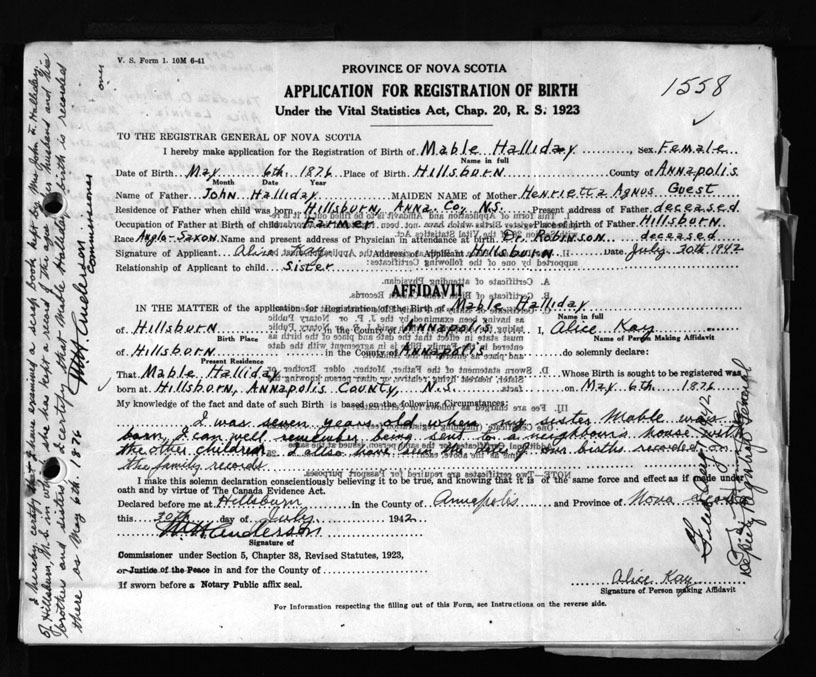 V. S. Form 1. 10M 6-41
PROVINCE OF NOVA SCOTIA
APPLICATION FOR REGISTRATION OF BIRTH
Under the Vital Statistics Act, Chap. 20, R. S. 1923
1558
TO THE REGISTRAR GENERAL OF NOVA SCOTIA
I hereby make application for the Registration of Birth of Mable Halliday, Sex Female
Name in full
Date of Birth May 6th. 1876 Place of Birth Hillsburn County of Annapolis
Month Date Year
Name of Father John Halliday MAIDEN NAME of Mother Henrietta Agnus Guest
Residence of Father when child was born Hillsburn, Anna. Co, N.S. Present address of Father deceased
Occupation of Father at Birth of child Farmer Place of birth of Father Hillsburn
Race Anglo-Saxon Name and present address of Physician in attendance at birth Dr. Robinson deceased
Signature of Applicant Alice Kay Address of Applicant Hillsburn Date July 20th 1942
Relationship of Applicant to child Sister
AFFIDAVIT
IN THE MATTER of the application for Registration of the Birth of Mable Halliday
Name in full
of Hillsburn in the County of Annapolis I, Alice Kay
Birth Place Name of Person Making Affidavit
of Hillsburn in the County of Annapolis do solemnly declare:
Present Residence
That Mable Halliday Whose Birth is sought to be registered was
born at Hillsburn, Annapolis County, N.S. on May 6th. 1876
My knowledge of the fact and date of such Birth is based on the following Circumstances:
I was seven years old when my sister Mable was
born, I can well remember being sent to a neighbour's house with
the other children. I also have seen the date of our births recorded in
the family records
I make this solemn declaration conscientiously believing it to be true, and knowing that it is of the same force and effect as if made under
oath and by virtue of The Canada Evidence Act.
Declared before me at Hillsburn in the County of Annapolis and Province of Nova Scotia
this 20th day of July 1942
Anderson
Signature of
Commissioner under Section 5, Chapter 38, Revised Statutes, 1923,
or Justice of the Peace in and for the County of
If sworn before a Notary Public affix seal.
Alice Kay
Signature of Person making Affidavit
For Information respecting the filling out of this Form, see Instructions on the reverse side.
I hereby certify that I have examined a scrap book kept by Mrs John F. Halliday
of Hillsburn, N.S. in which she has kept a record of the ages of her husband and his
brother and sisters. I certify that Mable Halliday birth is recorded
there as May 6th. 1876
Anderson
Commissioner
over
Filed
Deputy Registrar General